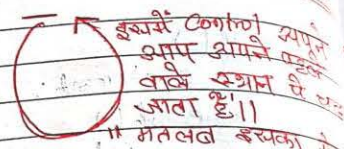 इसमें Control अपने
आप अपने पहले
वाले स्थान पे
जाता हैं।।
" मतलब इसका